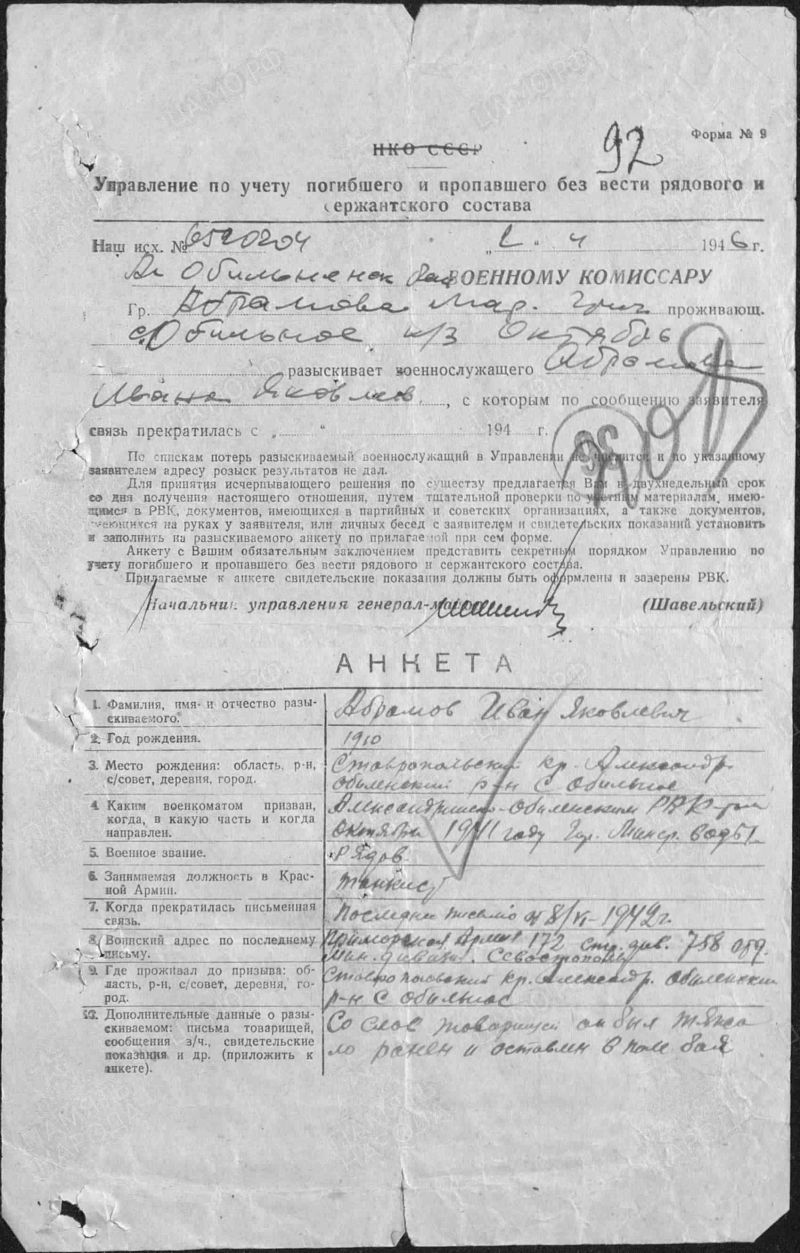 Форма № 9
НКО СССР
92
Управление по учету погибшего и пропавшего без вести рядового и
сержантского состава
Наш исх. № 6520204 „2“ 4 1946 г.
Ал Обильненск ВОЕННОМУ КОМИССАРУ
Гр. Абрамова Мар. Григ проживающ.
с Обильное к/з Октябрь
разыскивает военнослужащего Абрамова
Ивана Яковлев, с которым по сообщению заявителя
связь прекратилась с „ “ 194 г.
По спискам потерь разыскиваемый военнослужащий в Управлении не числится и по указанному
заявителем адресу розыск результатов не дал.
Для принятия исчерпывающего решения по существу предлагается Вам в двухнедельный срок
со дня получения настоящего отношения, путем тщательной проверки по учетным материалам, имею-
щимся в РВК, документов, имеющихся в партийных и советских организациях, а также документов,
имеющихся на руках у заявителя, или личных бесед с заявителем и свидетельских показаний установить
и заполнить на разыскиваемого анкету по прилагаемой при сем форме.
Анкету с Вашим обязательным заключением представить секретным порядком Управлению по
учету погибшего и пропавшего без вести рядового и сержантского состава.
Прилагаемые к анкете свидетельские показания должны быть оформлены и заверены РВК.
Начальник управления генерал-майор (Шавельский)
АНКЕТА
1. Фамилия, имя и отчество разы-
скиваемого.
Абрамов Иван Яковлевич
2. Год рождения.
1910
3. Место рождения: область, р-н,
с/совет, деревня, город.
Ставропольский кр. Александр
Обиленский р-н С Обильное
4. Каким военкоматом призван,
когда, в какую часть и когда
направлен.
Александриско-Обиленским РВК-том
Октября 1941 году Гор. Минер. воды.
5. Военное звание.
Рядов
6. Занимаемая должность в Крас-
ной Армии.
танкист
7. Когда прекратилась письменная
связь.
Последнее письмо 8/VI-1942г.
8. Воинский адрес по последнему
письму.
Приморская Армия 172 стр. див. 758 отд.
Мин. дивизи. Севастополь
9. Где проживал до призыва: об-
ласть, р-н, с/совет, деревня, го-
род.
Ставропольский кр. Александр. Обиленский
р-н С Обильное
10. Дополнительные данные о разы-
скиваемом: письма товарищей,
сообщения з/ч., свидетельские
показания и др. (приложить к
анкете).
Со слов товарищей он был тяже
ло ранен и оставлен в поле боя